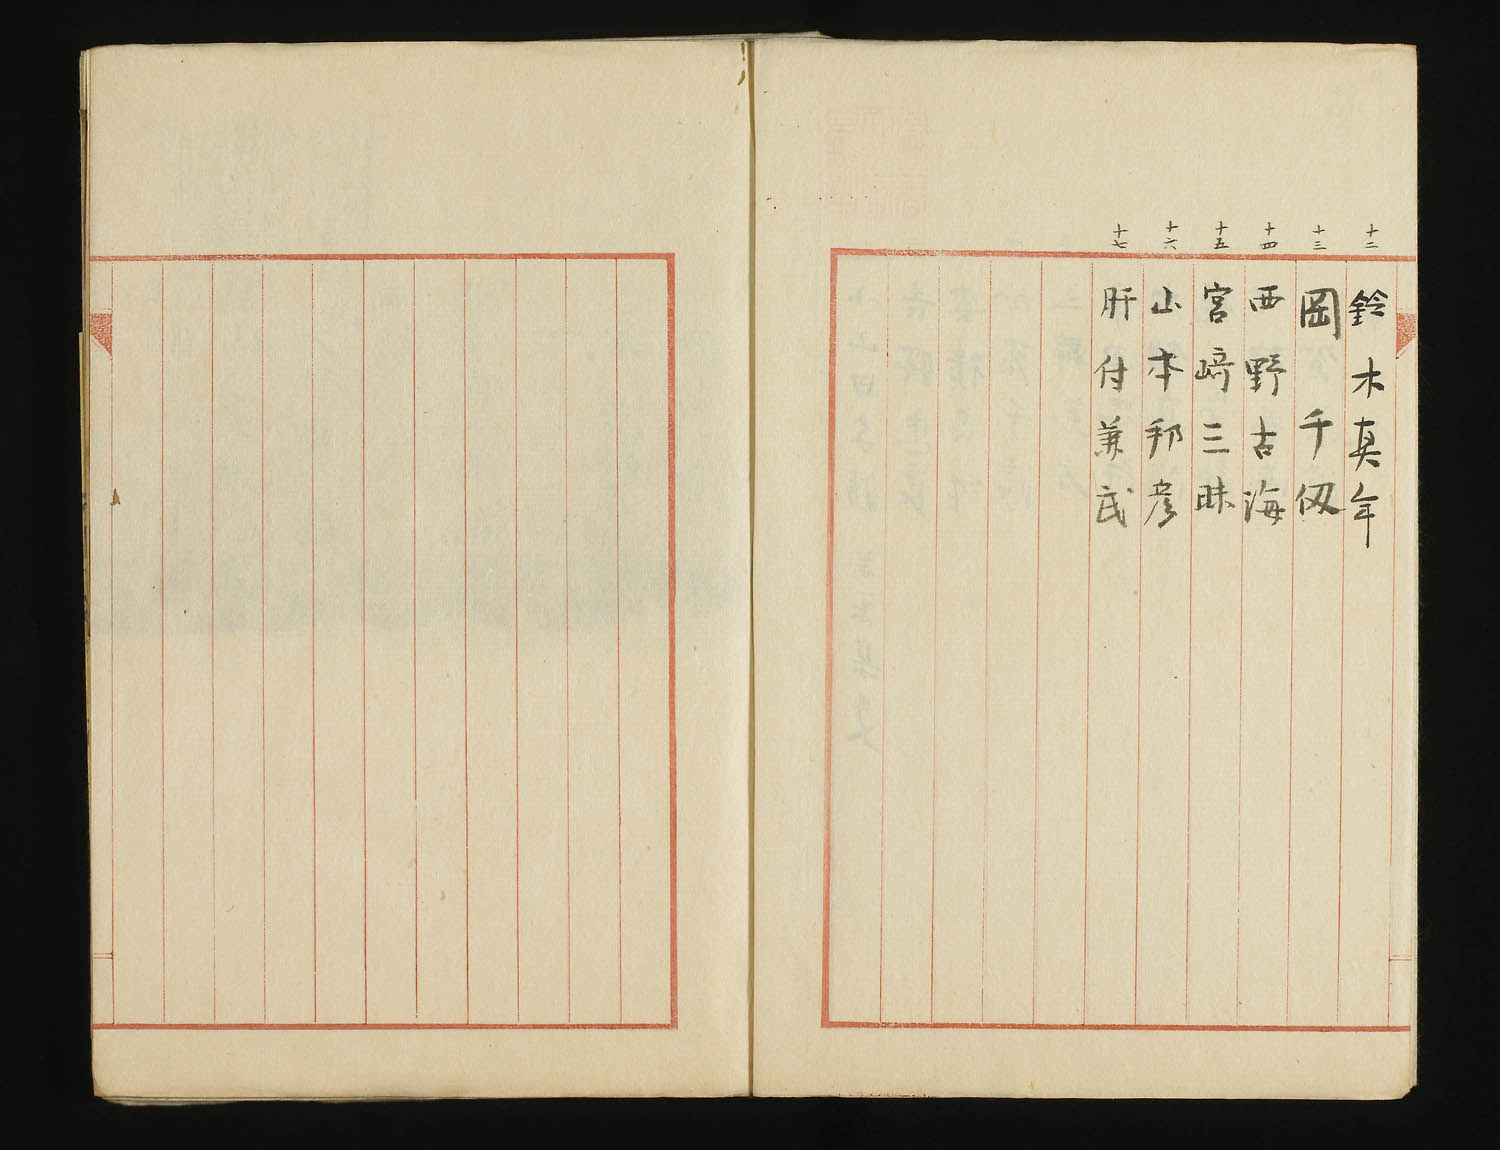 十二 鈴木真年
十三 岡千仭
十四 西野古海
十五 宮崎三昧
十六 山本邦彦
十七 肝付兼武